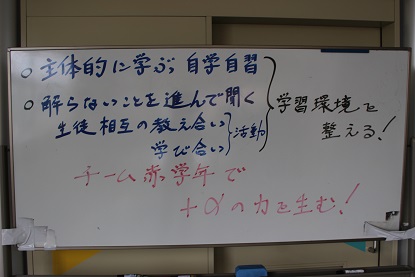 ○主体的に学ぶ 自学自習
○解らないことを進んで聞く
生徒相互の教え合い
学び合い
活動
学習環境を
整える!
チーム赤学年で
+αの力を生む!